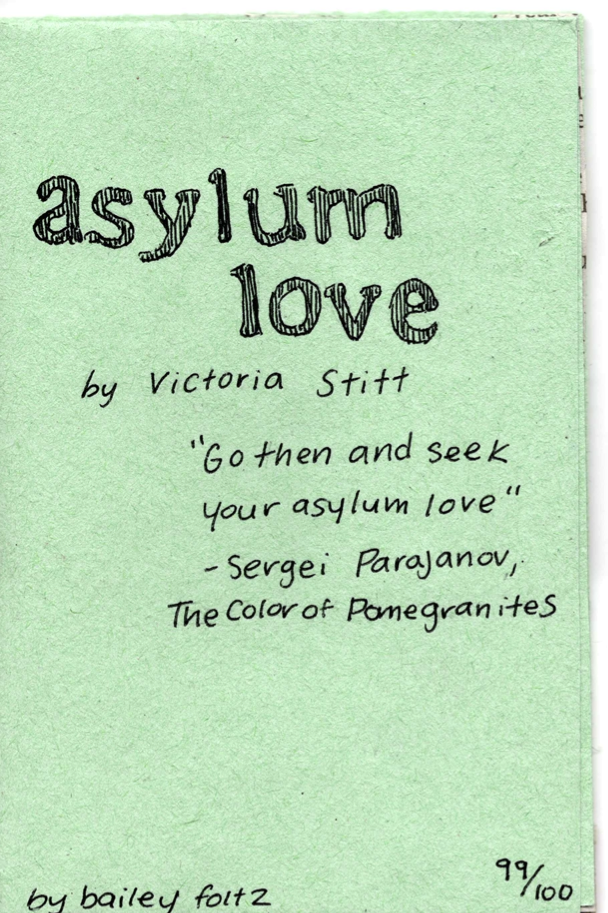 asylum
love
by Victoria Stitt
"Go then and seek
your asylum love"
- Sergei Parajanov,
The Color of Pomegranites
99/100
by bailey foltz